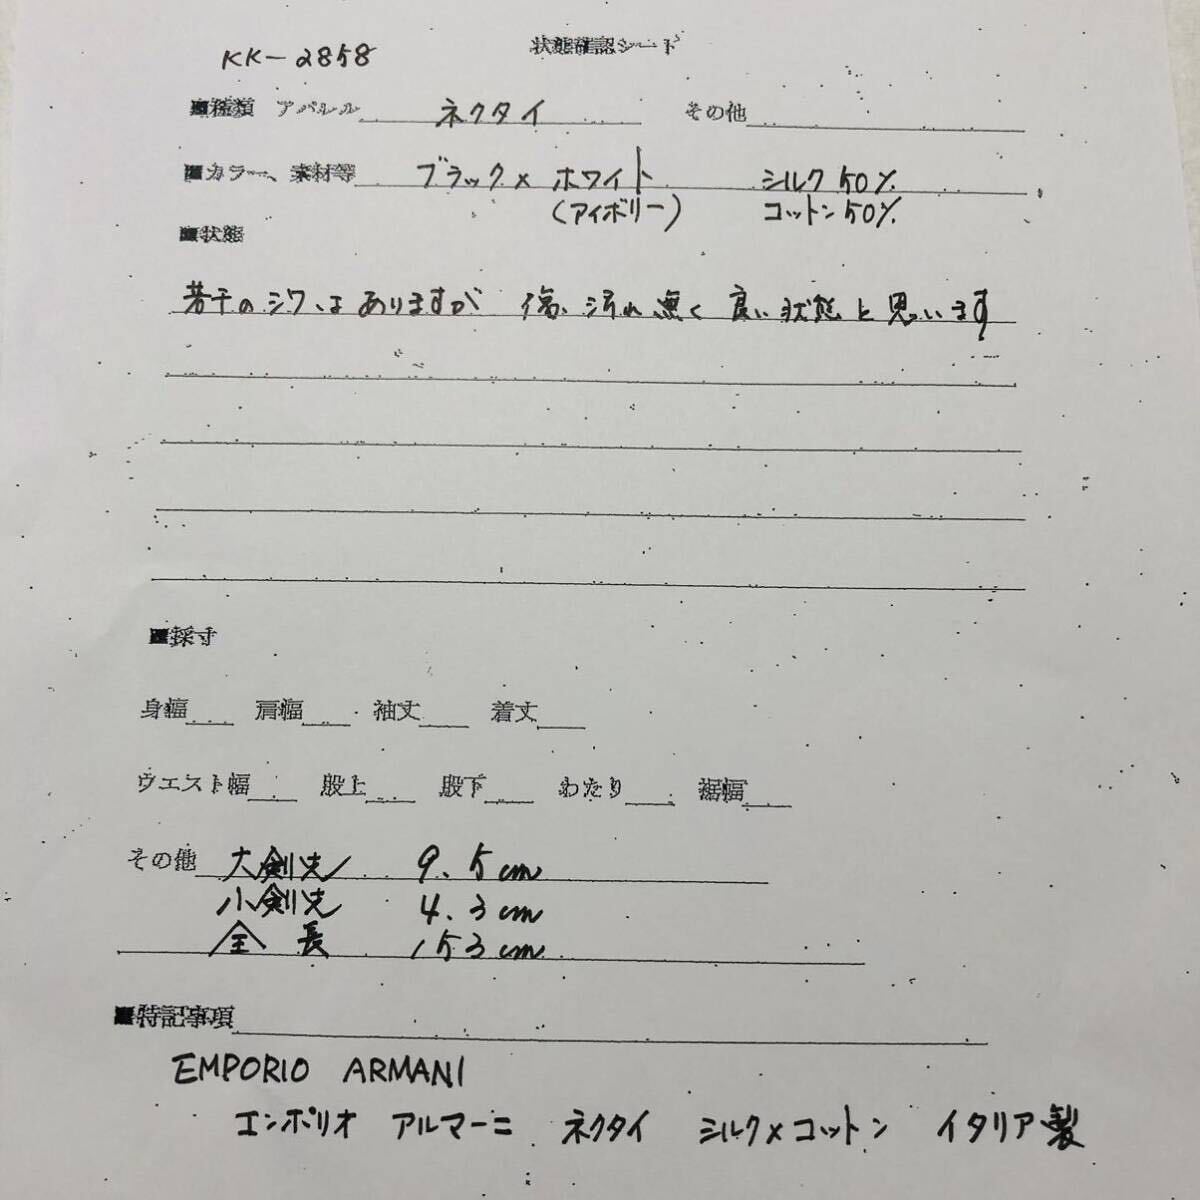 状態確認シート
KK-2858
■種類 アパレル ネクタイ その他
■カラー、素材等 ブラック×ホワイト シルク50%
(アイボリー) コットン50%
■状態
若干のシワはありますが 傷、汚れ無く 良い状態と思います
■採寸
身幅 肩幅 袖丈 着丈
ウエスト幅 股上 股下 わたり 裾幅
その他 大剣先 9.5cm
小剣先 4.3cm
全長 153cm
■特記事項
EMPORIO ARMANI
エンポリオ アルマーニ ネクタイ シルク×コットン イタリア製